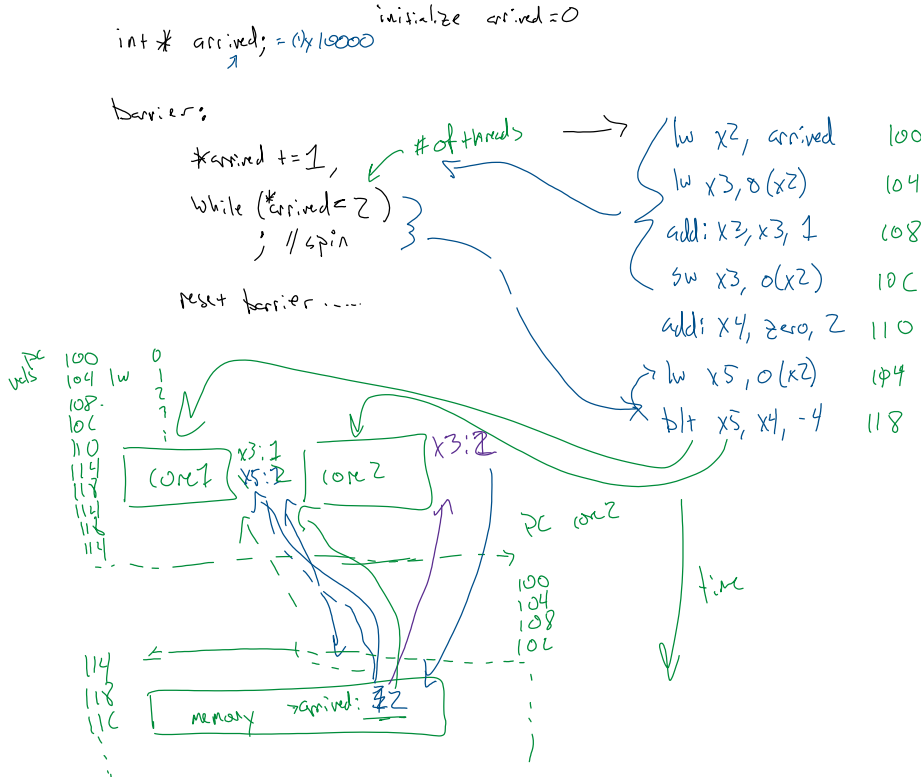 initialize arrived = 0
int * arrived; = 0x10000
barrier:
*arrived += 1,
while (*arrived < 2)
; // spin
reset barrier .....
# of threads
lw x2, arrived 100
lw x3, 0(x2) 104
addi x3, x3, 1 108
sw x3, 0(x2) 10C
addi x4, zero, 2 110
lw x5, 0(x2) 114
blt x5, x4, -4 118
pc
vals
100 0
104 lw 1
108. 2
10C 3
110
114
118
114
118
114
core 1
x3:1
x5:2
core 2
x3:2
PC core 2
100
104
108
10C
time
114
118
11C
memory
arrived: 2